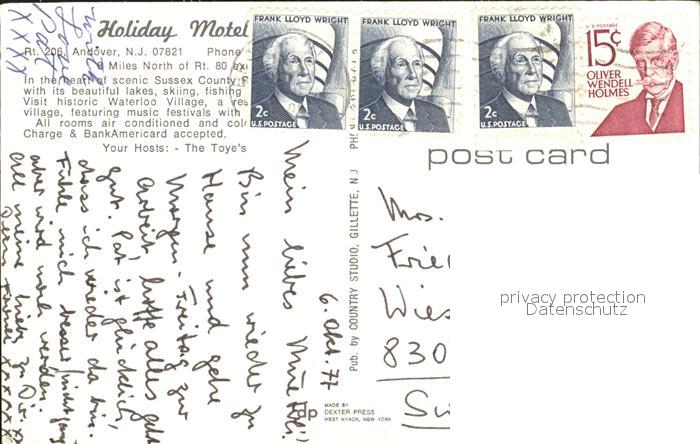 Holiday Motel
Rt. 206, Andover, N.J. 07821 Phone
8 Miles North of Rt. 80
In the heart of scenic Sussex County
with its beautiful lakes, skiing, fishing
Visit historic Waterloo Village, a
village, featuring music festivals with
All rooms air conditioned and
Charge & BankAmericard accepted.
Your Hosts: - The Toye's
Love
Pat
XXXX
FRANK LLOYD WRIGHT
2c
U.S. POSTAGE
FRANK LLOYD WRIGHT
2c
U.S. POSTAGE
FRANK LLOYD WRIGHT
2c
U.S. POSTAGE
U.S. POSTAGE
15¢
OLIVER
WENDELL
HOLMES
post card
6. Okt. 77
Mein liebes
Bin nun wieder zu
Hause und gehe
Morgen - Freitag zur
Arbeit, hoffe alles geht
gut. Pat ist glücklich,
dass ich wieder da bin.
Fühle mich besser
aber wird noch werden.
All meine Liebe zu Dir.
XXXXX
Pub. by COUNTRY STUDIO, GILLETTE, N J
dp
MADE BY
DEXTER PRESS
WEST NYACK, NEW YORK
Mrs.
Frie
Wies
830
privacy protection
Datenschutz